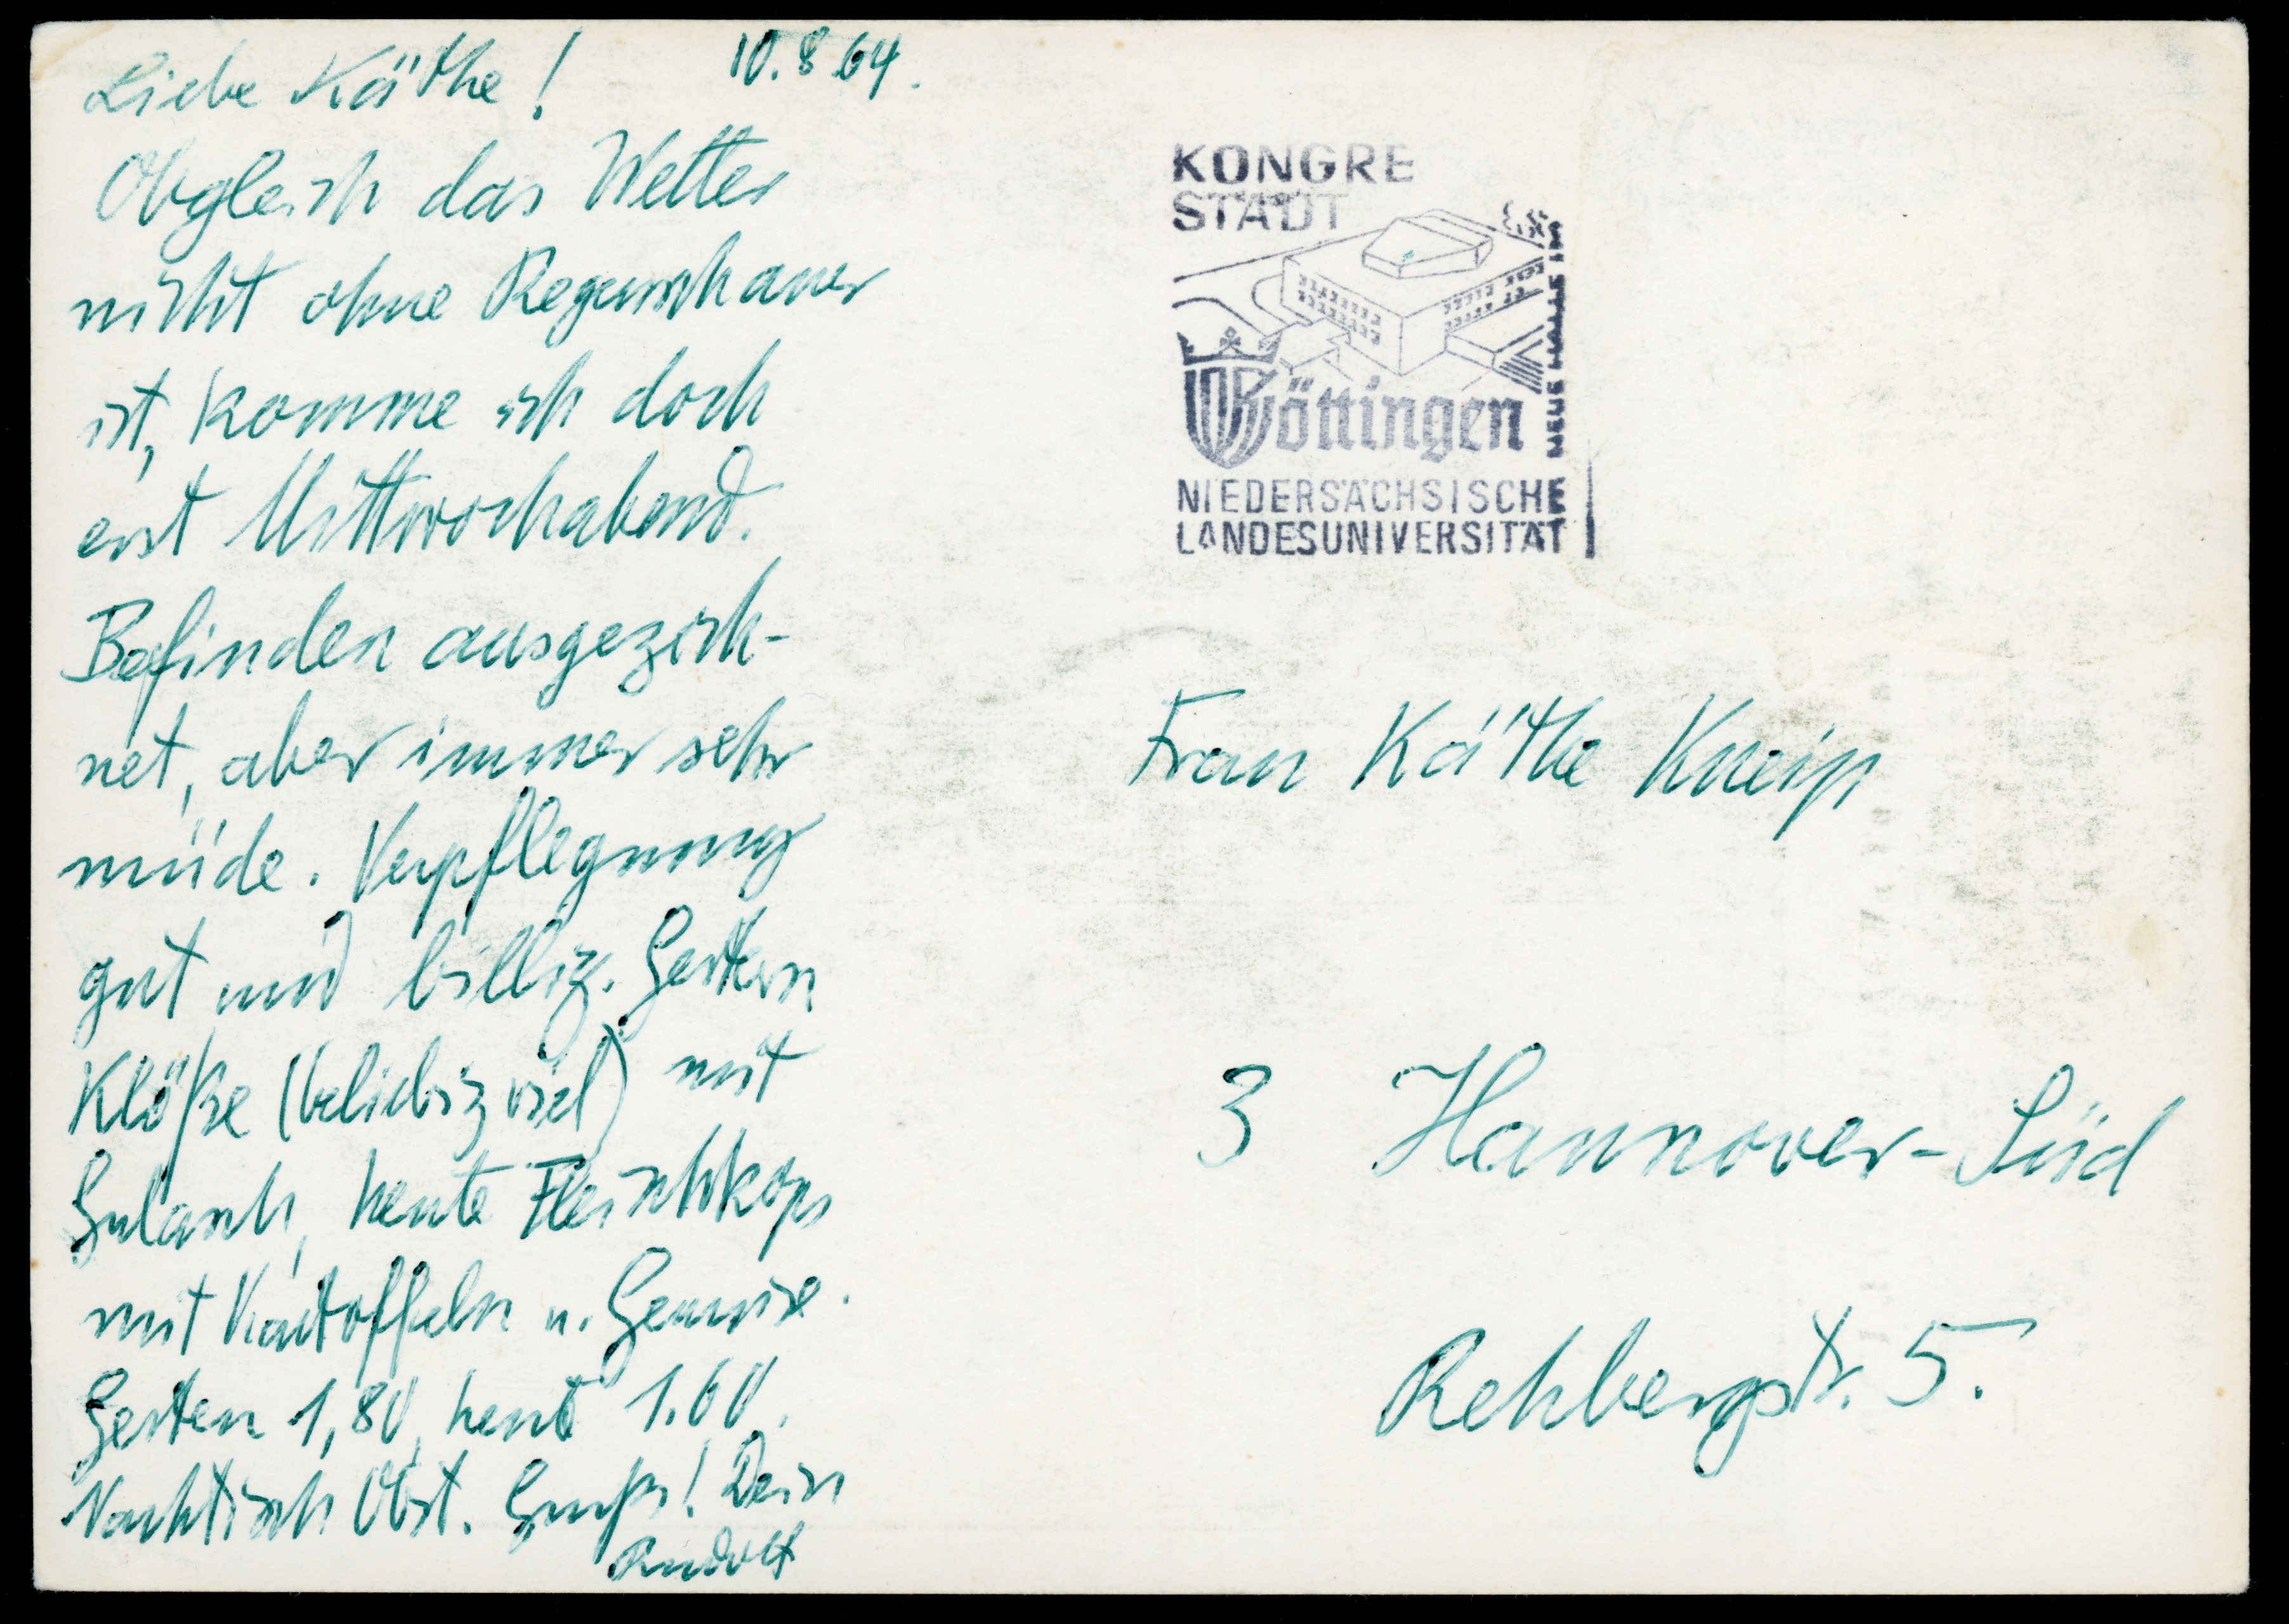 10.8.64.
Liebe Käthe!
Obgleich das Wetter
nicht ohne Regenschauer
ist, komme ich doch
erst Mittwochabend.
Befinden ausgezeich-
net, aber immer sehr
müde. Verpflegung
gut und billig. Gestern
Klöße (beliebig viel) mit
Gulasch, heute Fleischkops
mit Kartoffeln u. Gemüse.
Gestern 1,80, heute 1.60.
Nachtisch Obst. Gruß! Dein
Rudolf
KONGRE
STADT
Göttingen
NEUE HALLE IM
NIEDERSÄCHSISCHE
LANDESUNIVERSITÄT
Frau Käthe Kneip
3 Hannover-Süd
Rehbergstr. 5.